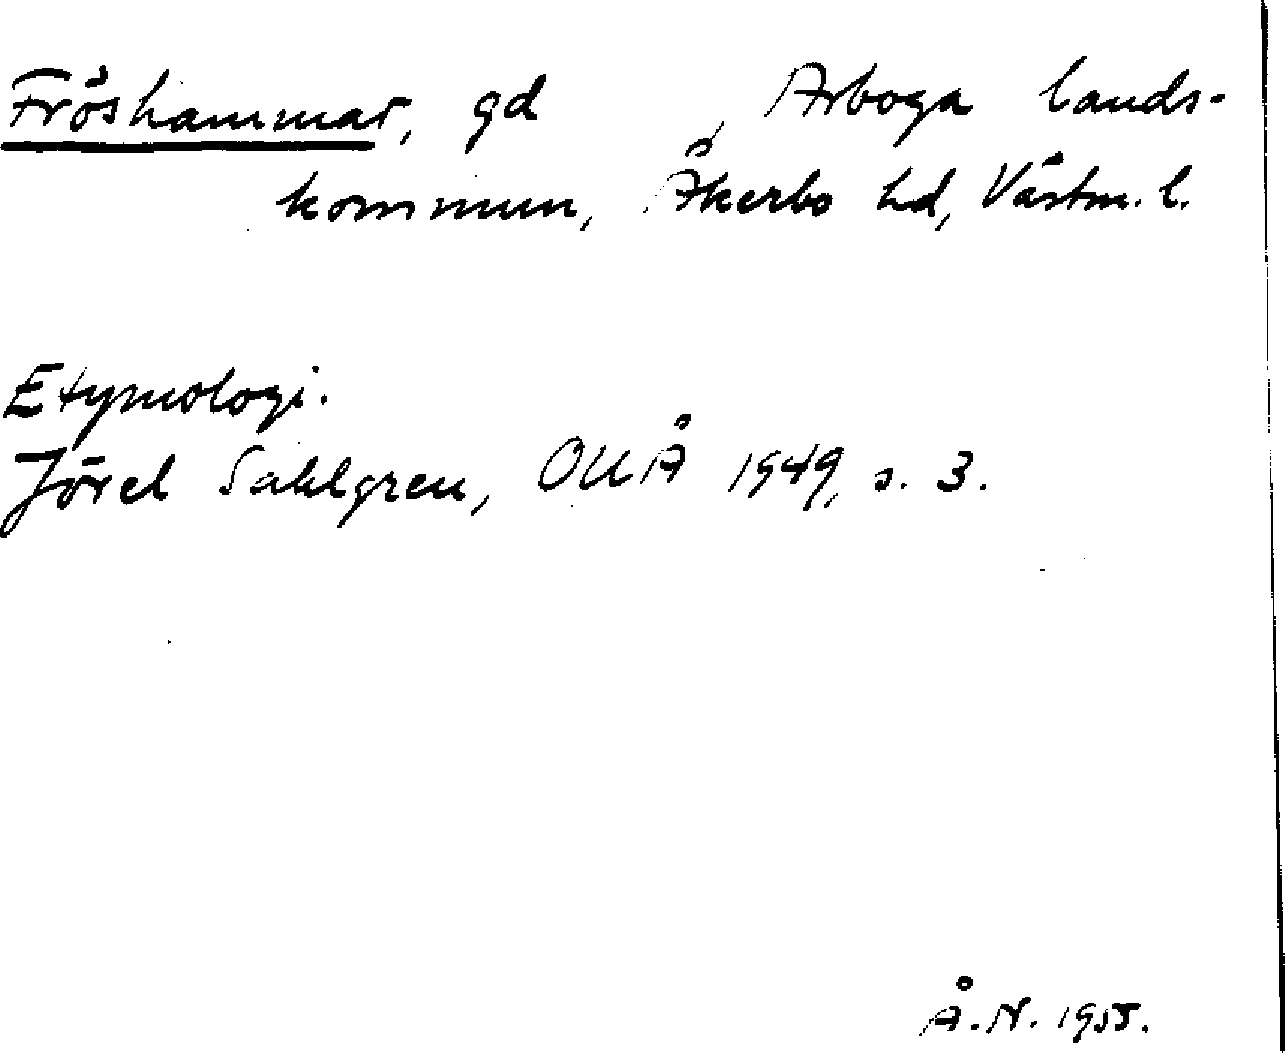 Fröshammar, gd , Arboga lands-
kommun, Åkerbo hd, Västm. l.
Etymologi.
Jörel Sahlgren, OUÅ 1949, s. 3.
Å.N. 1955.